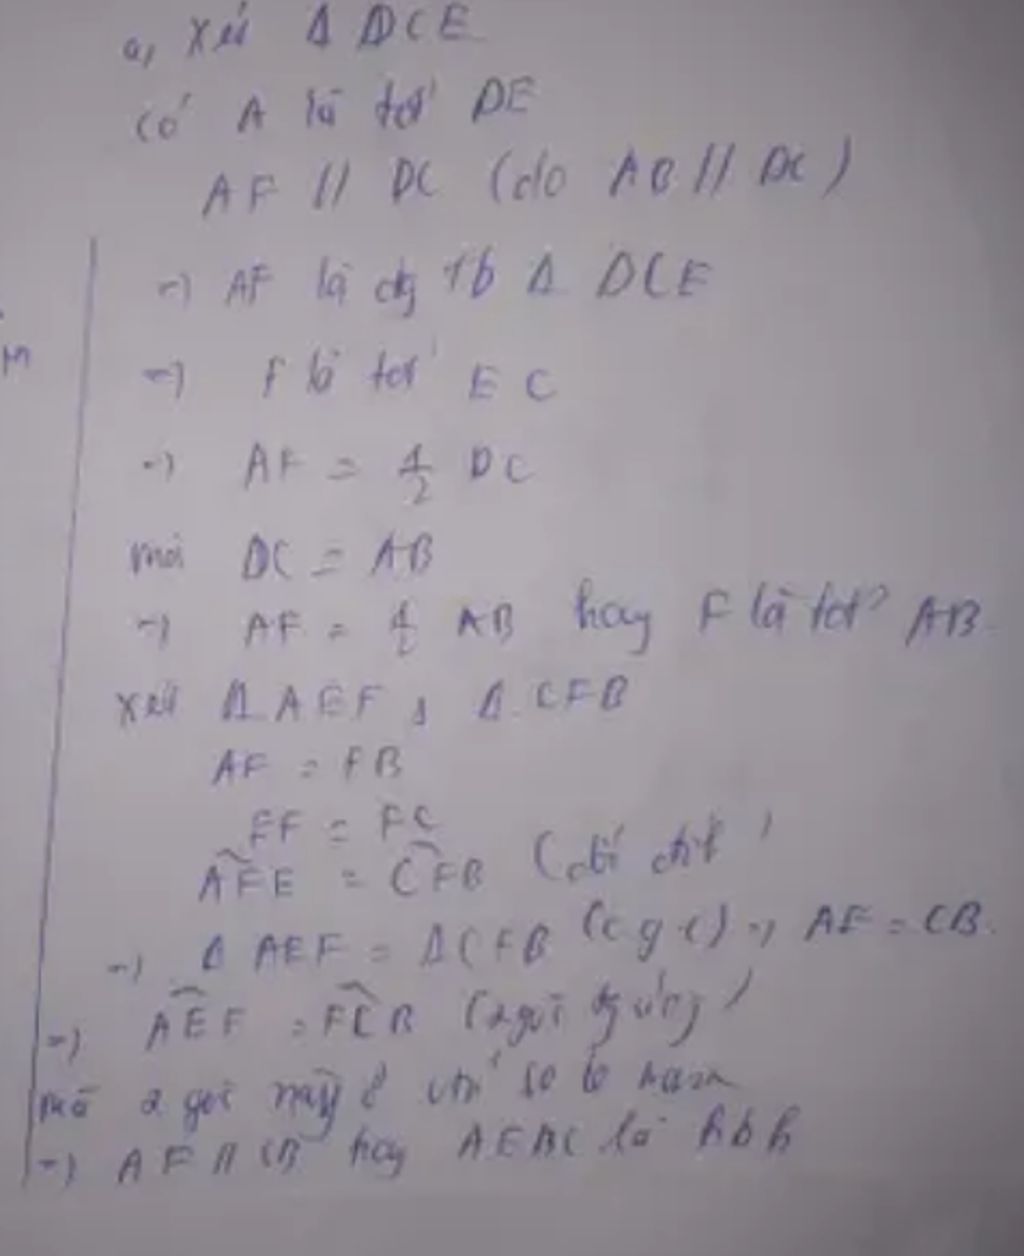 a, Xét Δ DCE
Có A là tđ' DE
AF // DC (do AB // DC)
=) AF là đg Tb Δ DCE
=) F là tđ' EC
=) AF = 1/2 DC
mà DC = AB
=) AF = 1/2 AB hay F là tđ' AB
Xét Δ AEF, Δ CFB
AF = FB
EF = FC
AFE = CFB (đối đỉnh)
=) Δ AEF = Δ CFB (c g c) =) AE = CB.
=) AEF = FCB (2 góc)
mà 2 góc này ở vtrí so le
=) AE // CB hay AEBC là hbh